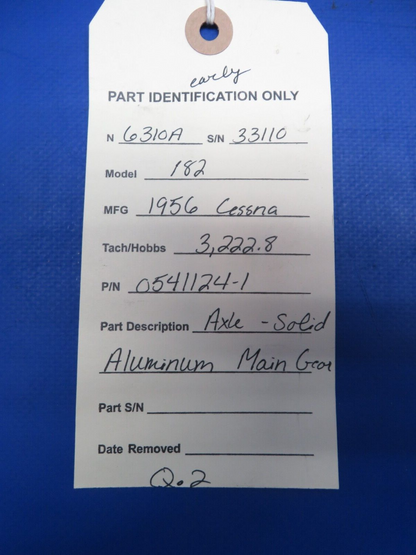 early
PART IDENTIFICATION ONLY
N 6310A S/N 33110
Model 182
MFG 1956 Cessna
Tach/Hobbs 3,222.8
P/N 0541124-1
Part Description Axle - Solid
Aluminum Main Gear
Part S/N
Date Removed
Q.2